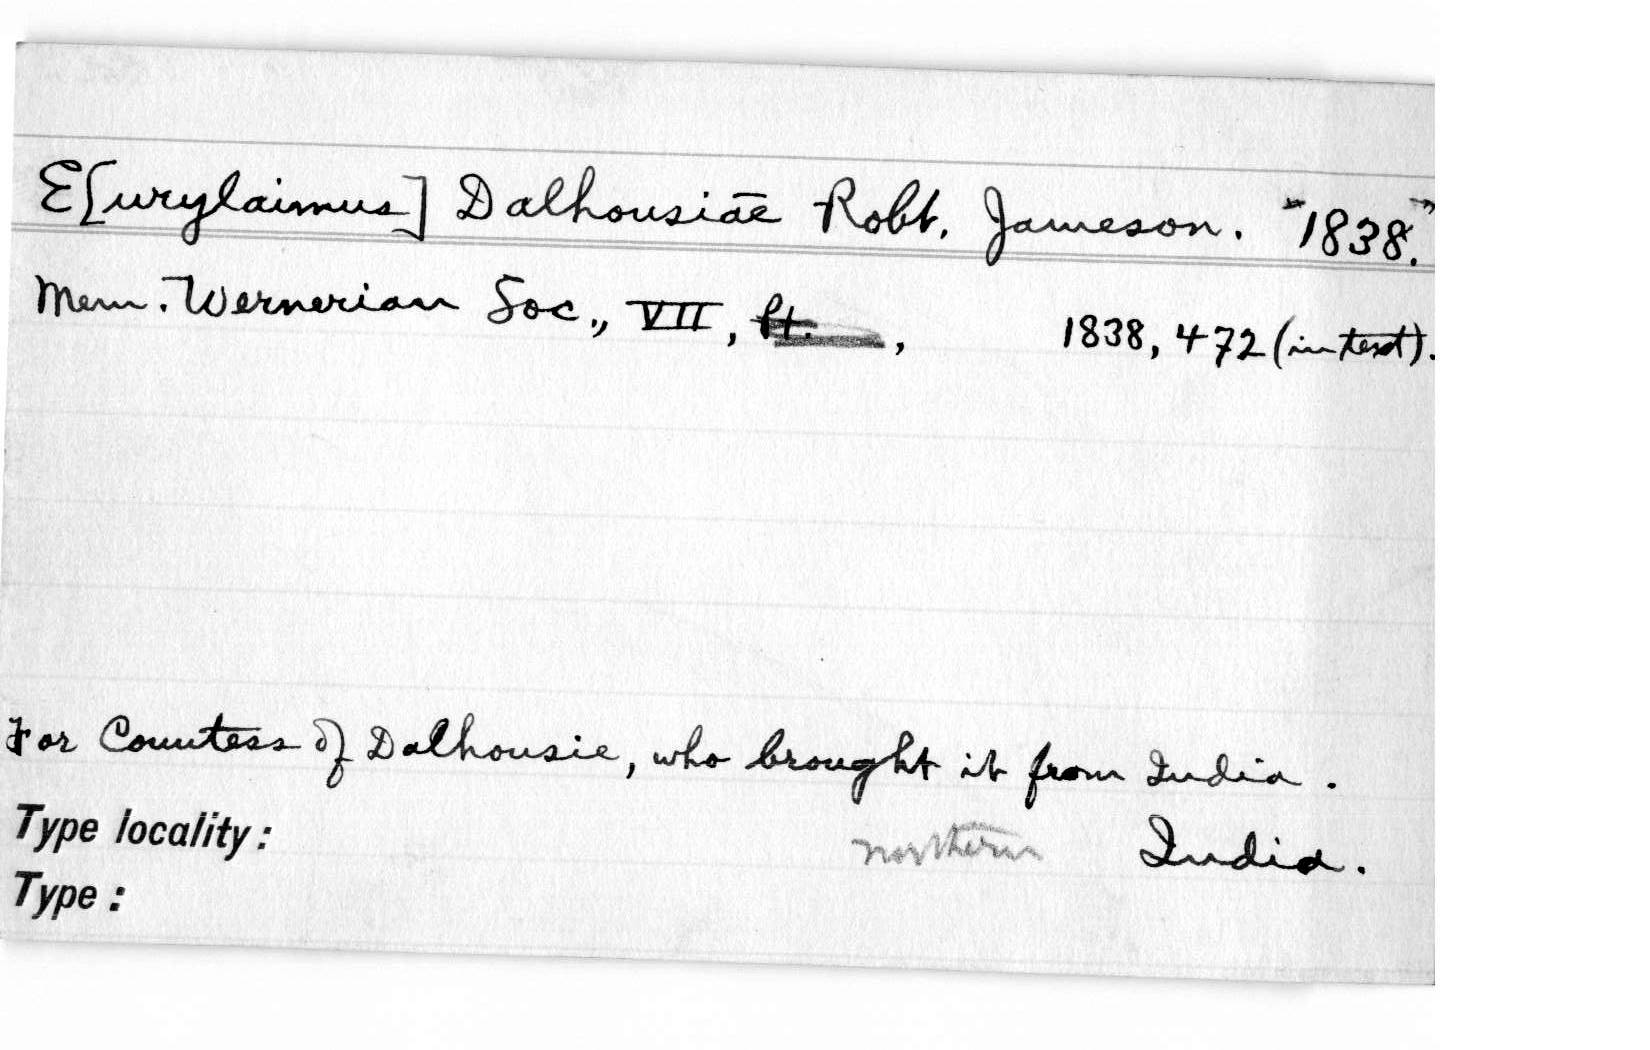 E[urylaimus] Dalhousiae Robt. Jameson. "1838."
Mem. Wernerian Soc., VII, Pt. , 1838, 472 (in text).
For Countess of Dalhousie, who brought it from India.
Type locality: northern India.
Type: